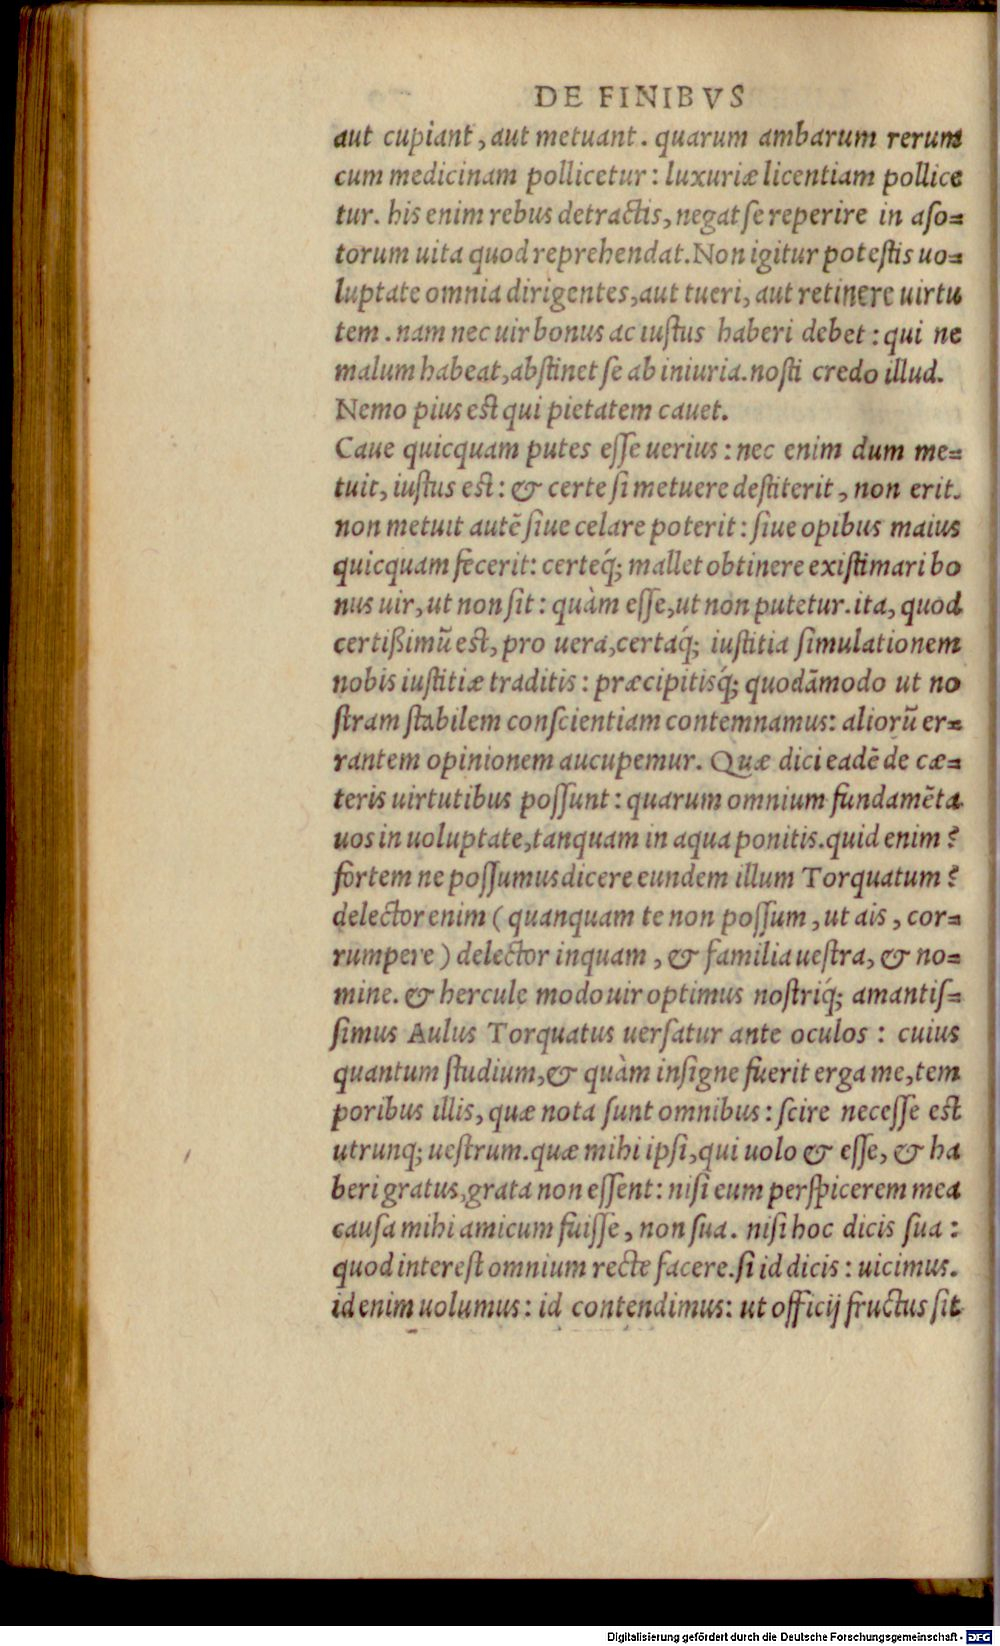 DE FINIBVS
aut cupiant, aut metuant. quarum ambarum rerum
cum medicinam pollicetur: luxuriæ licentiam pollice
tur. his enim rebus detractis, negat se reperire in aſo=
torum uita quod reprehendat. Non igitur poteſtis uo=
luptate omnia dirigentes, aut tueri, aut retinere uirtu
tem. nam nec uir bonus ac iuſtus haberi debet: qui ne
malum habeat, abſtinet ſe ab iniuria. noſti credo illud.
Nemo pius eſt qui pietatem cauet.
Caue quicquam putes eſſe uerius: nec enim dum me=
tuit, iuſtus eſt: & certe ſi metuere deſtiterit, non erit.
non metuit autē ſiue celare poterit: ſiue opibus maius
quicquam fecerit: certeq́; mallet obtinere exiſtimari bo
nus uir, ut non ſit: quàm eſſe, ut non putetur. ita, quod
certißimū eſt, pro uera, certaq́; iuſtitia ſimulationem
nobis iuſtitiæ traditis: præcipitisq́; quodāmodo ut no
ſtram ſtabilem conſcientiam contemnamus: aliorū er=
rantem opinionem aucupemur. Quæ dici eadē de cæ=
teris uirtutibus poſſunt: quarum omnium fundamēta
uos in uoluptate, tanquam in aqua ponitis. quid enim?
fortem ne poſſumus dicere eundem illum Torquatum?
delector enim (quanquam te non poſſum, ut ais, cor=
rumpere) delector inquam, & familia ueſtra, & no=
mine. & hercule modo uir optimus noſtriq́; amantiſ=
ſimus Aulus Torquatus uerſatur ante oculos: cuius
quantum ſtudium, & quàm inſigne fuerit erga me, tem
poribus illis, quæ nota ſunt omnibus: ſcire neceſſe eſt
utrunq; ueſtrum. quæ mihi ipſi, qui uolo & eſſe, & ha
beri gratus, grata non eſſent: niſi eum perſpicerem mea
cauſa mihi amicum fuiſſe, non ſua. niſi hoc dicis ſua:
quod intereſt omnium recte facere. ſi id dicis: uicimus.
id enim uolumus: id contendimus: ut officij fructus ſit
Digitalisierung gefördert durch die Deutsche Forschungsgemeinschaft - DFG